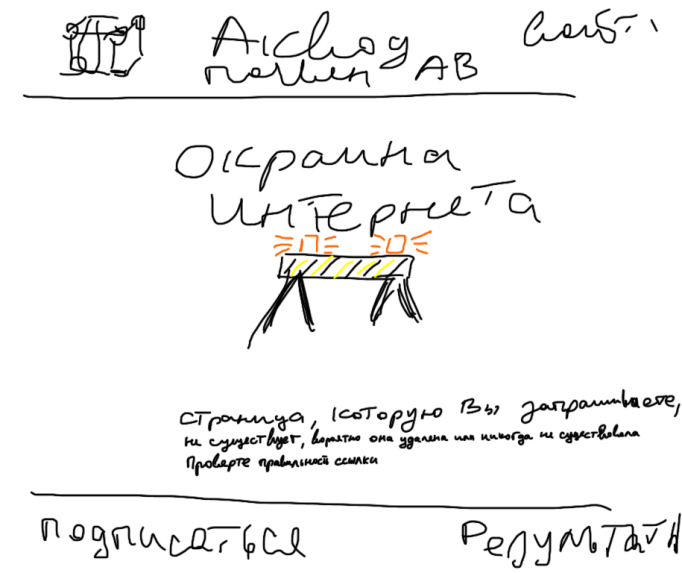 АВ
Окраина
интернета
страница, которую Вы запрашиваете,
не существует, вероятно она удалена или никогда не существовала
Проверте правильность ссылки
подписаться
Результаты